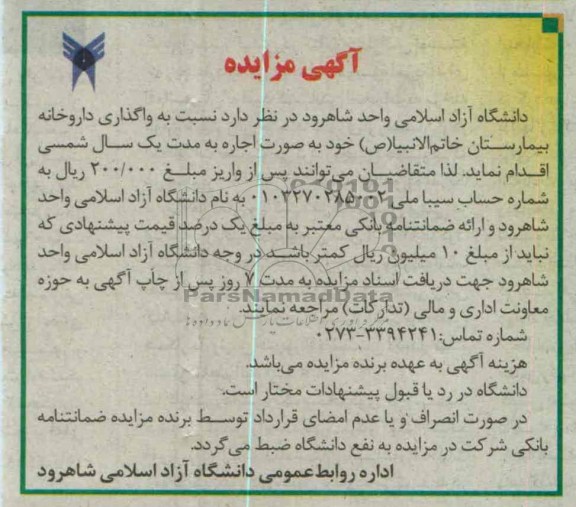 آگهی مزایده
دانشگاه آزاد اسلامی واحد شاهرود در نظر دارد نسبت به واگذاری داروخانه
بیمارستان خاتم‌الانبیا(ص) خود به صورت اجاره به مدت یک سال شمسی
اقدام نماید. لذا متقاضیان می‌توانند پس از واریز مبلغ ۲۰۰/۰۰۰ ریال به
شماره حساب سیبا ملی ۰۱۰۳۲۷۰۲۸۵۰۰۲ به نام دانشگاه آزاد اسلامی واحد
شاهرود و ارائه ضمانتنامه بانکی معتبر به مبلغ یک درصد قیمت پیشنهادی که
نباید از مبلغ ۱۰ میلیون ریال کمتر باشد در وجه دانشگاه آزاد اسلامی واحد
شاهرود جهت دریافت اسناد مزایده به مدت ۷ روز پس از چاپ آگهی به حوزه
معاونت اداری و مالی (تدارکات) مراجعه نمایند.
ParsNamadData
شماره تماس:۳۳۹۴۲۴۱-۰۲۷۳
هزینه آگهی به عهده برنده مزایده می‌باشد.
دانشگاه در رد یا قبول پیشنهادات مختار است.
در صورت انصراف و یا عدم امضای قرارداد توسط برنده مزایده ضمانتنامه
بانکی شرکت در مزایده به نفع دانشگاه ضبط می‌گردد.
اداره روابط عمومی دانشگاه آزاد اسلامی شاهرود